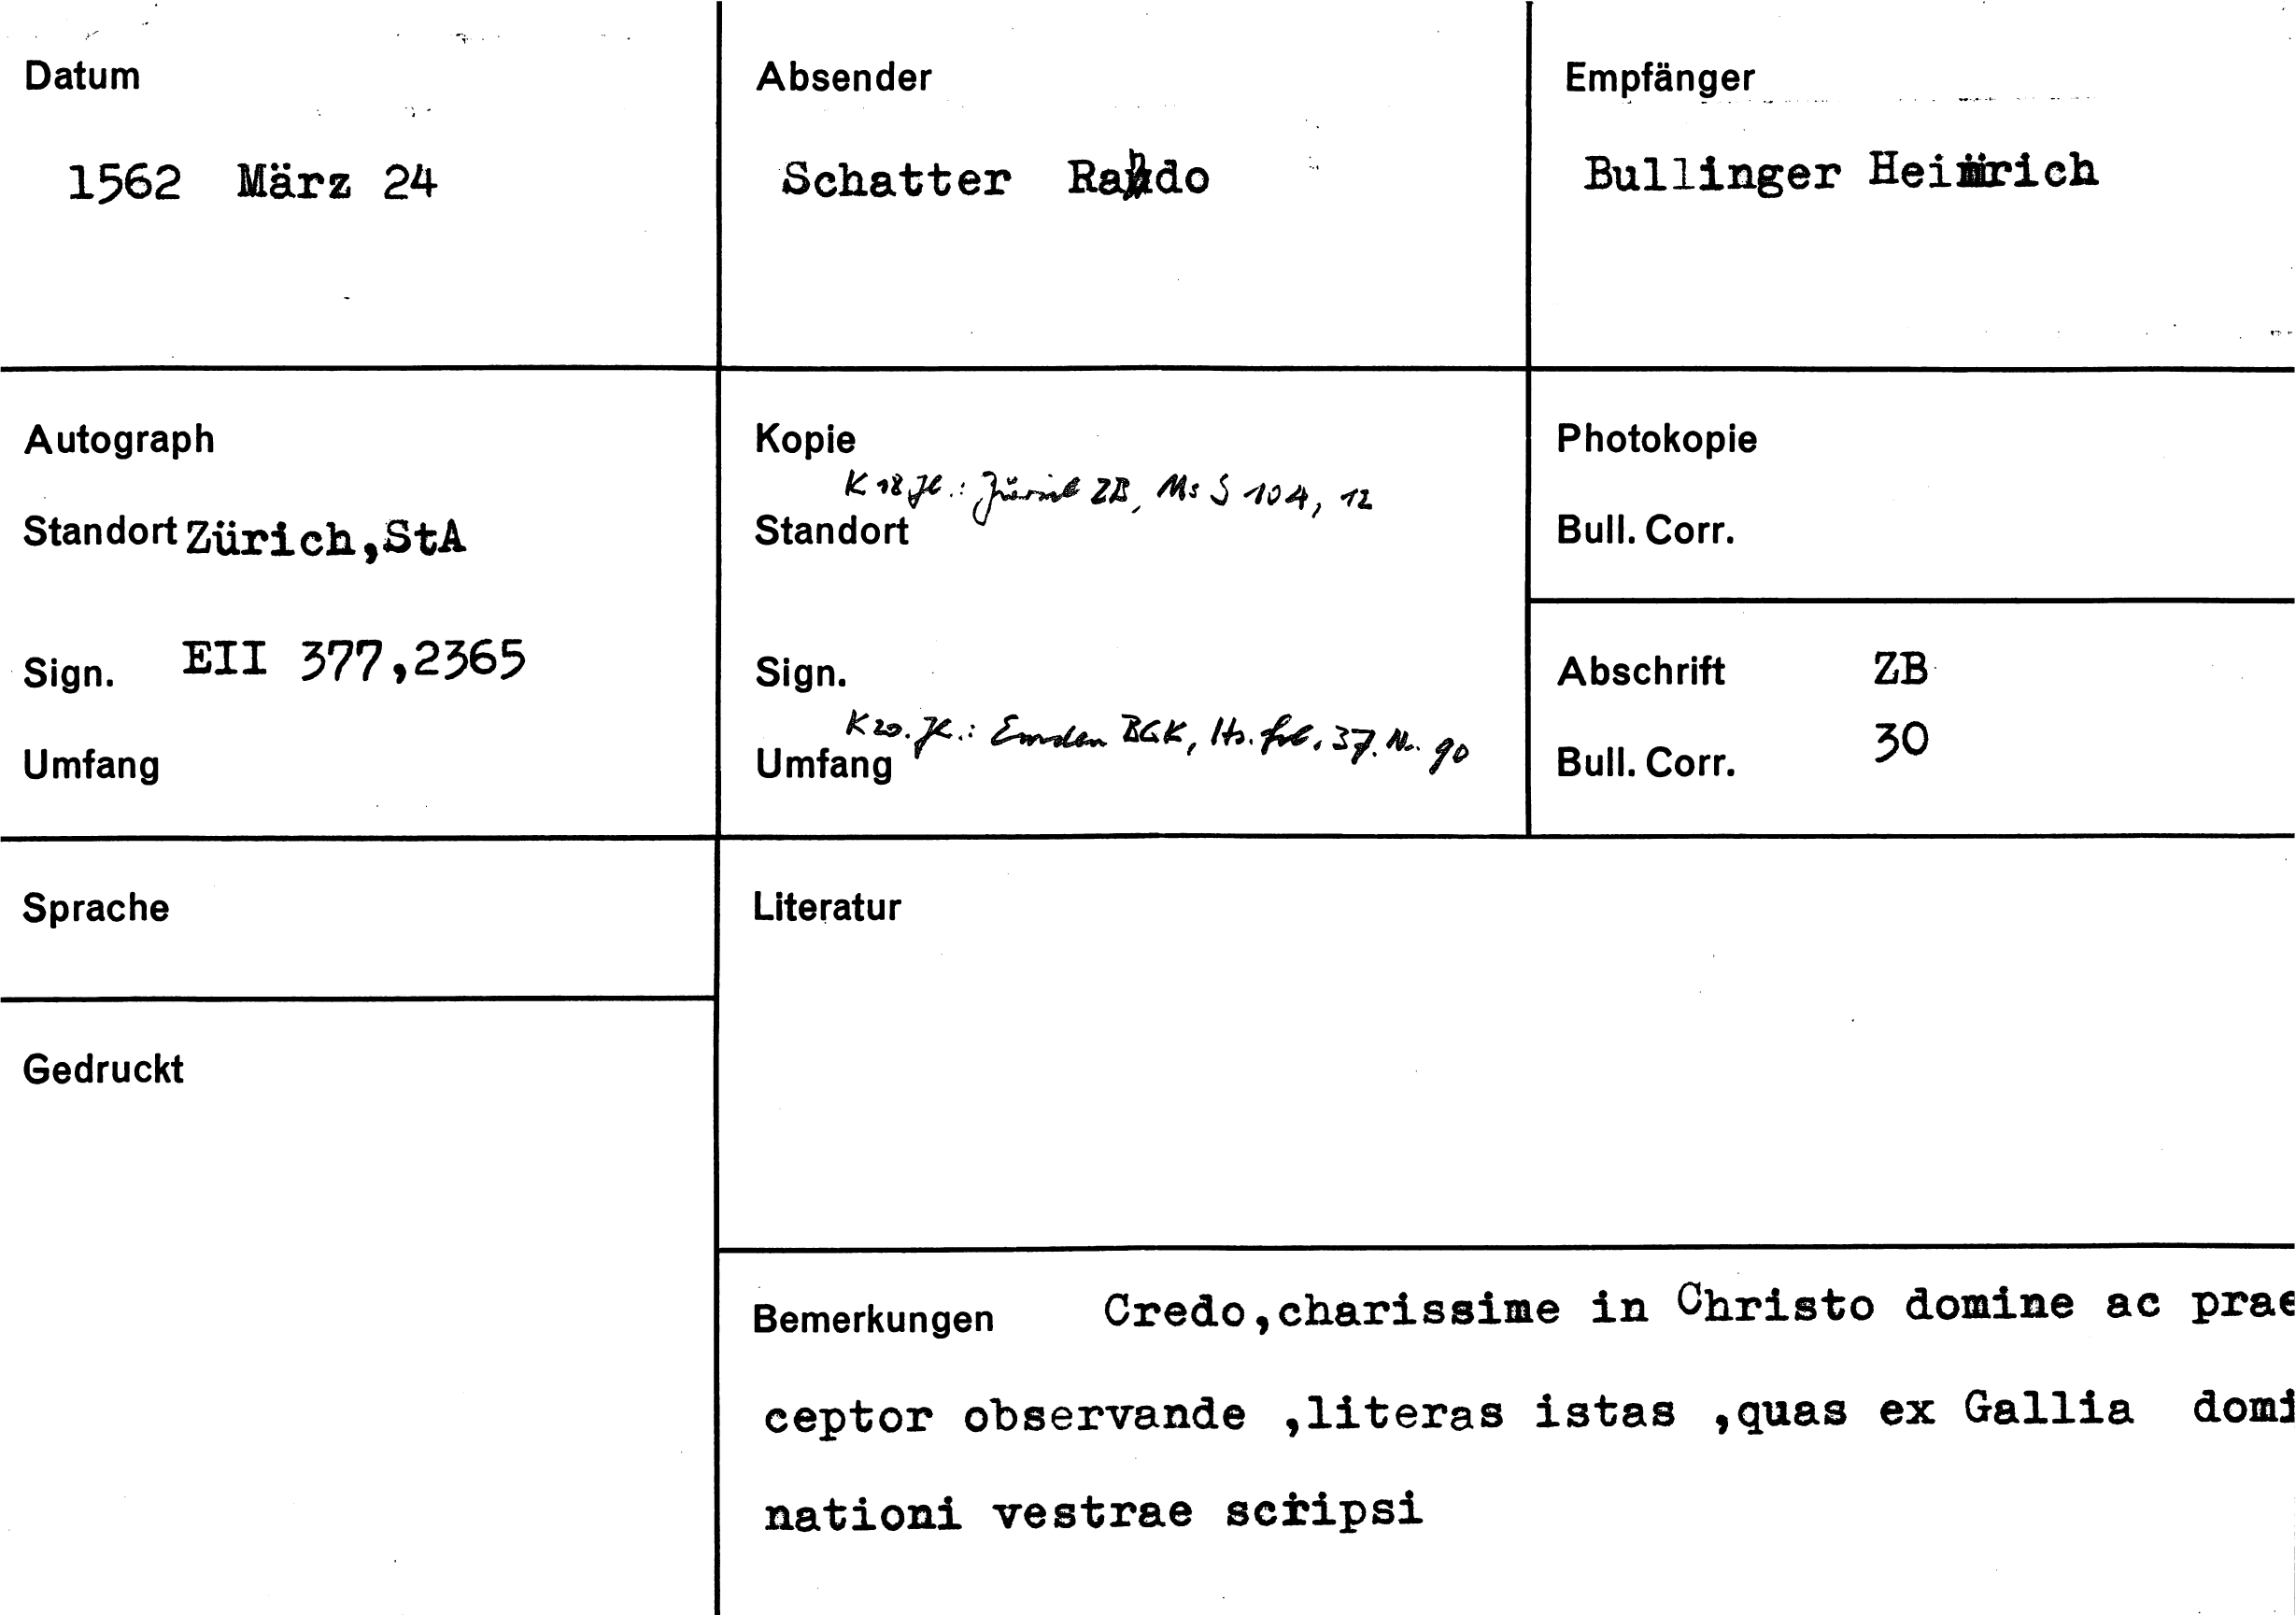 Datum
1562 März 24
Absender
Schatter Rando
Empfänger
Bullinger Heinrich
Autograph
Standort Zürich,StA
Sign. EII 377,2365
Umfang
Kopie
K 18 Jh.: Zürich ZB, Ms S 104, 12
Standort
Sign.
K 20. Jh.: Emden BGK, Hs. fol. 37. Nr. 90
Umfang
Photokopie
Bull. Corr.
Abschrift ZB
Bull. Corr. 30
Sprache
Gedruckt
Literatur
Bemerkungen Credo,charissime in Christo domine ac prae
ceptor observande ,literas istas ,quas ex Gallia domi
nationi vestrae scripsi